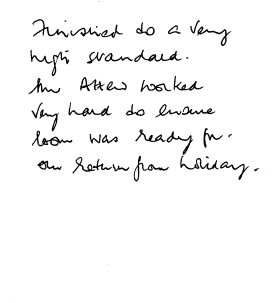 Finished to a very
high standard.
Mr Atten worked
very hard to ensure
room was ready for
our return from holiday.